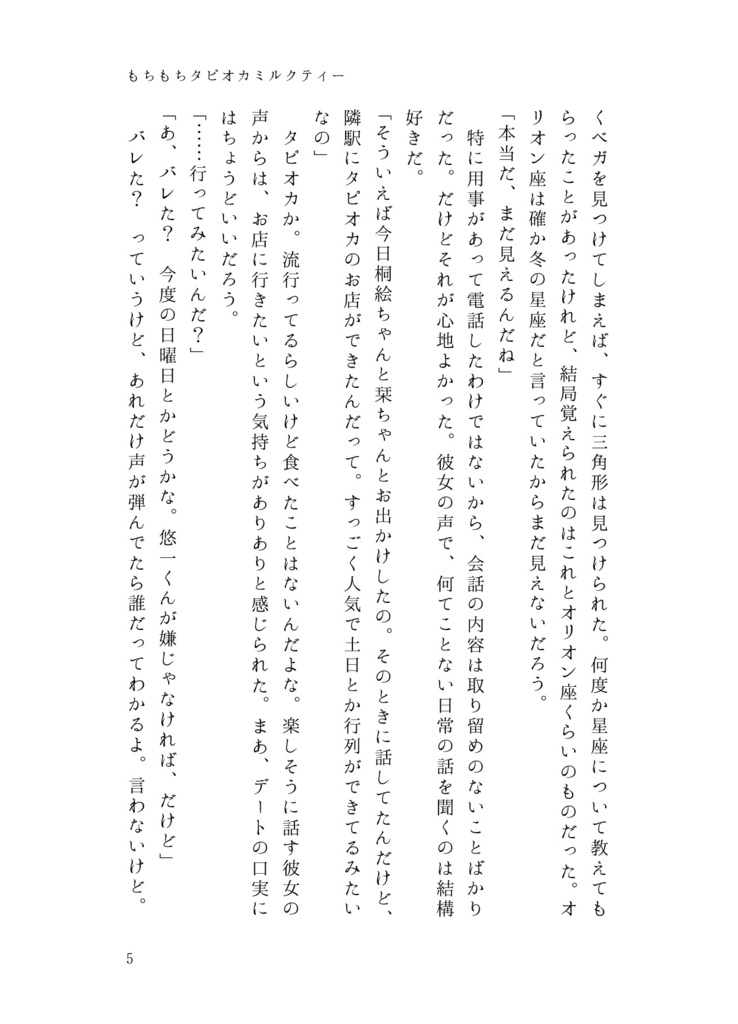 もちもちタピオカミルクティー
くベガを見つけてしまえば、すぐに三角形は見つけられた。何度か星座について教えても
らったことがあったけれど、結局覚えられたのはこれとオリオン座くらいのものだった。オ
リオン座は確か冬の星座だと言っていたからまだ見えないだろう。
「本当だ、まだ見えるんだね」
　特に用事があって電話したわけではないから、会話の内容は取り留めのないことばかり
だった。だけどそれが心地よかった。彼女の声で、何てことない日常の話を聞くのは結構
好きだ。
「そういえば今日桐絵ちゃんと栞ちゃんとお出かけしたの。そのときに話してたんだけど、
隣駅にタピオカのお店ができたんだって。すっごく人気で土日とか行列ができてるみたい
なの」
　タピオカか。流行ってるらしいけど食べたことはないんだよな。楽しそうに話す彼女の
声からは、お店に行きたいという気持ちがありありと感じられた。まあ、デートの口実に
はちょうどいいだろう。
「……行ってみたいんだ？」
「あ、バレた？　今度の日曜日とかどうかな。悠一くんが嫌じゃなければ、だけど」
　バレた？　っていうけど、あれだけ声が弾んでたら誰だってわかるよ。言わないけど。
5